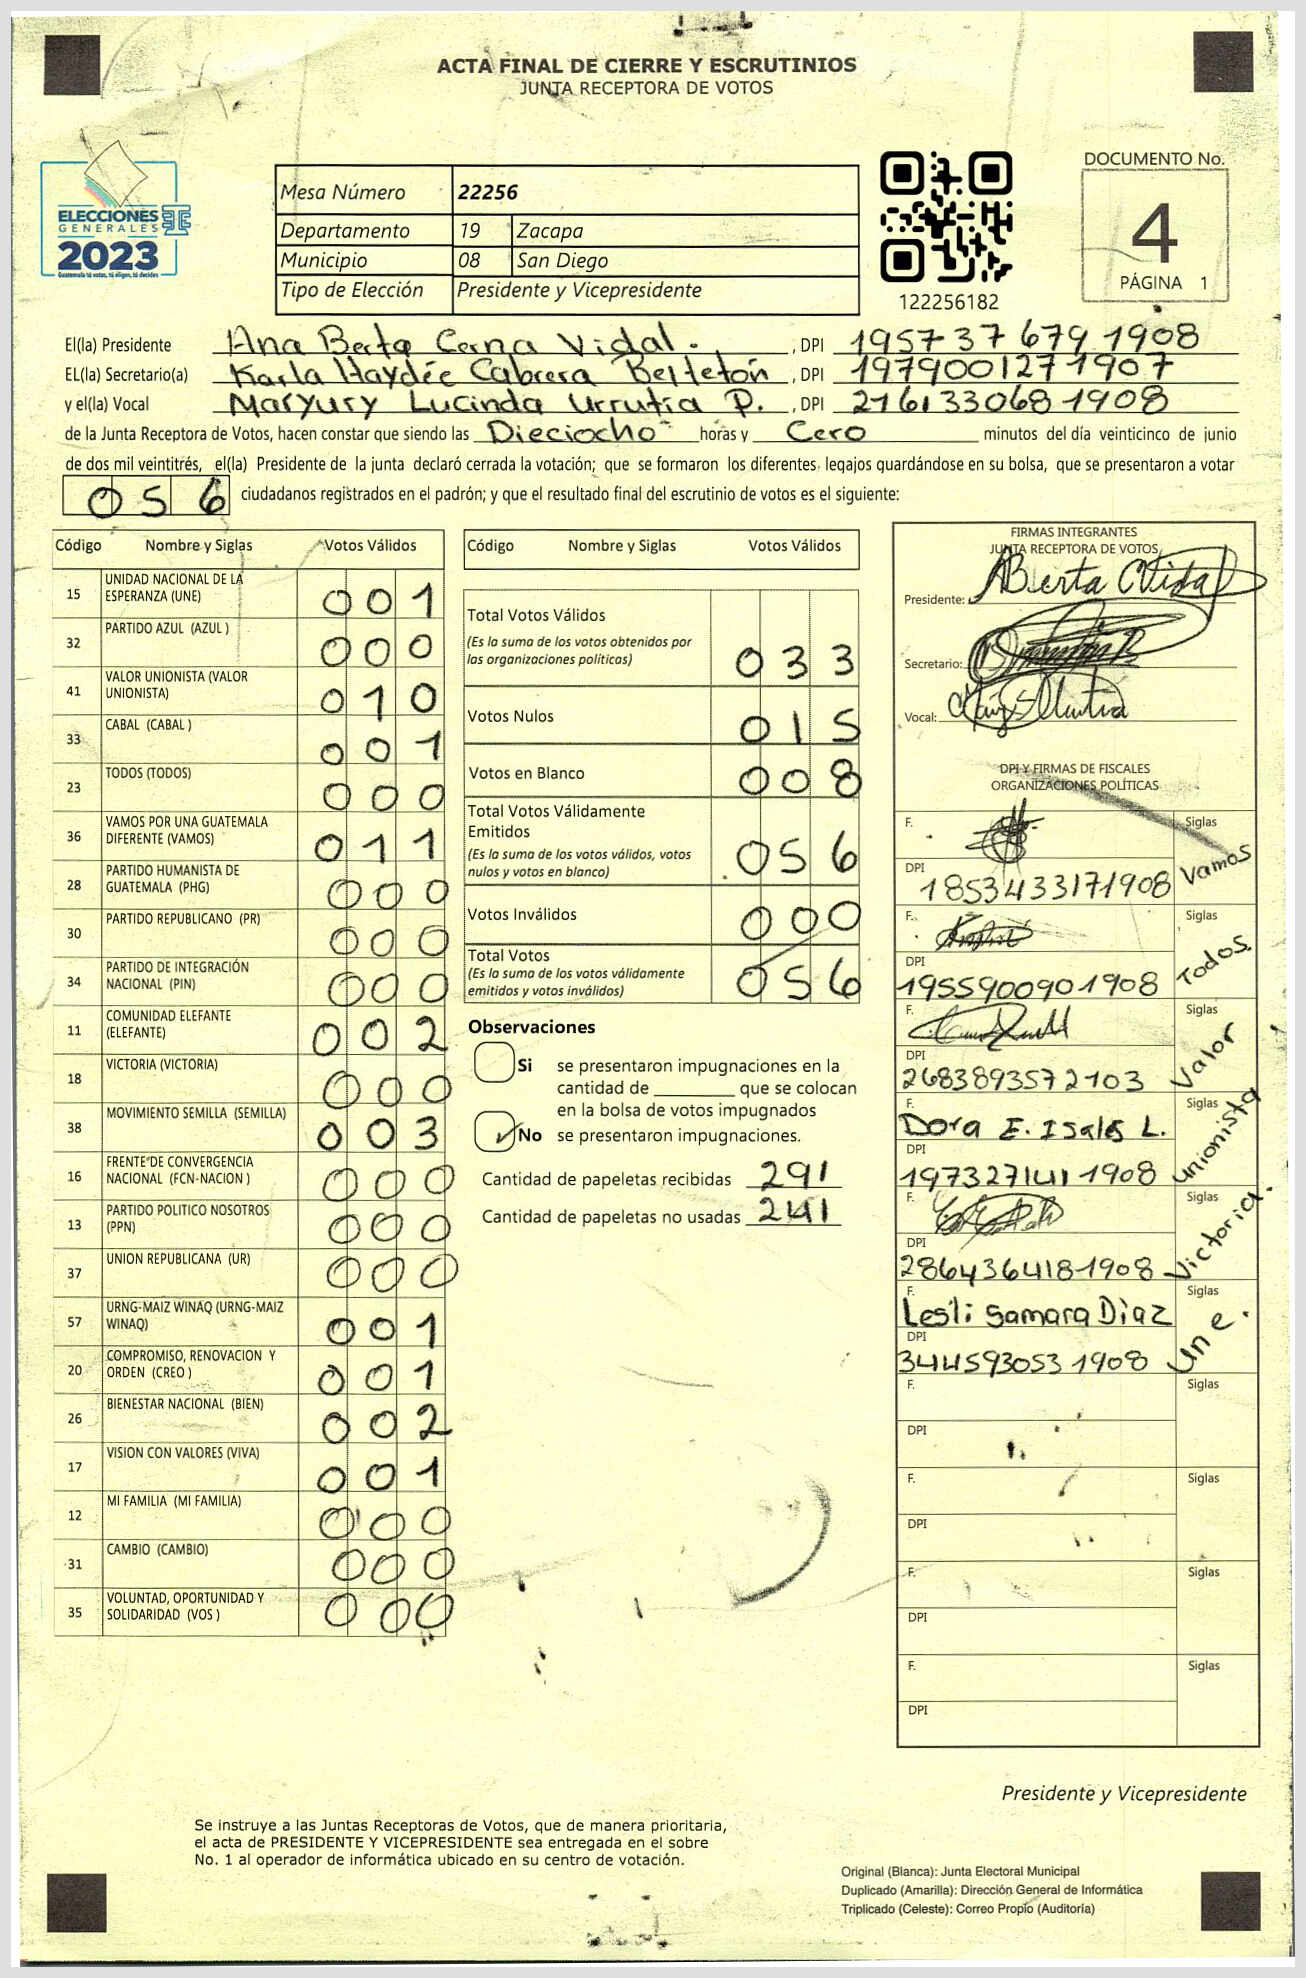 ACTA FINAL DE CIERRE Y ESCRUTINIOS
JUNTA RECEPTORA DE VOTOS
ELECCIONES
GENERALES
2023
Guatemala tú votas, tú eliges, tú decides
Mesa Número 22256
Departamento 19 Zacapa
Municipio 08 San Diego
Tipo de Elección Presidente y Vicepresidente
122256182
DOCUMENTO No.
4
PÁGINA 1
El(la) Presidente Ana Berta Cerna Vidal. , DPI 1957 37 679 1908
EL(la) Secretario(a) Karla Haydée Cabrera Beltetón , DPI 1979001271907
y el(la) Vocal Maryury Lucinda Urrutia P. , DPI 2161330681908
de la Junta Receptora de Votos, hacen constar que siendo las Dieciocho horas y Cero minutos del día veinticinco de junio
de dos mil veintitrés, el(la) Presidente de la junta declaró cerrada la votación; que se formaron los diferentes legajos guardándose en su bolsa, que se presentaron a votar
056 ciudadanos registrados en el padrón; y que el resultado final del escrutinio de votos es el siguiente:
Código Nombre y Siglas Votos Válidos
15 UNIDAD NACIONAL DE LA ESPERANZA (UNE) 001
32 PARTIDO AZUL (AZUL ) 000
41 VALOR UNIONISTA (VALOR UNIONISTA) 010
33 CABAL (CABAL ) 001
23 TODOS (TODOS) 000
36 VAMOS POR UNA GUATEMALA DIFERENTE (VAMOS) 011
28 PARTIDO HUMANISTA DE GUATEMALA (PHG) 000
30 PARTIDO REPUBLICANO (PR) 000
34 PARTIDO DE INTEGRACIÓN NACIONAL (PIN) 000
11 COMUNIDAD ELEFANTE (ELEFANTE) 002
18 VICTORIA (VICTORIA) 000
38 MOVIMIENTO SEMILLA (SEMILLA) 003
16 FRENTE DE CONVERGENCIA NACIONAL (FCN-NACION ) 000
13 PARTIDO POLITICO NOSOTROS (PPN) 000
37 UNION REPUBLICANA (UR) 000
57 URNG-MAIZ WINAQ (URNG-MAIZ WINAQ) 001
20 COMPROMISO, RENOVACION Y ORDEN (CREO ) 001
26 BIENESTAR NACIONAL (BIEN) 002
17 VISION CON VALORES (VIVA) 001
12 MI FAMILIA (MI FAMILIA) 000
31 CAMBIO (CAMBIO) 000
35 VOLUNTAD, OPORTUNIDAD Y SOLIDARIDAD (VOS ) 000
Código Nombre y Siglas Votos Válidos
Total Votos Válidos
(Es la suma de los votos obtenidos por
las organizaciones políticas) 033
Votos Nulos 015
Votos en Blanco 008
Total Votos Válidamente
Emitidos
(Es la suma de los votos válidos, votos
nulos y votos en blanco) 056
Votos Inválidos 000
Total Votos
(Es la suma de los votos válidamente
emitidos y votos inválidos) 056
Observaciones
Si se presentaron impugnaciones en la
cantidad de ________ que se colocan
en la bolsa de votos impugnados
No se presentaron impugnaciones.
Cantidad de papeletas recibidas 291
Cantidad de papeletas no usadas 241
FIRMAS INTEGRANTES
JUNTA RECEPTORA DE VOTOS
Presidente: ABerta CVidal
Secretario:
Vocal:
DPI Y FIRMAS DE FISCALES
ORGANIZACIONES POLÍTICAS
F. Siglas
DPI 1853433171908 Vamos
F. Siglas
DPI 1955900901908 Todos
F. Siglas
DPI 2683893572103 Valor
F. Dora E. Isales L. Siglas
DPI 1973271411908 unionista
F. Siglas
DPI 2864364181908 Victoria.
F. Lesli Samara Diaz Siglas
DPI 3445930531908 Une.
F. Siglas
DPI
F. Siglas
DPI
F. Siglas
DPI
F. Siglas
DPI
Presidente y Vicepresidente
Se instruye a las Juntas Receptoras de Votos, que de manera prioritaria,
el acta de PRESIDENTE Y VICEPRESIDENTE sea entregada en el sobre
No. 1 al operador de informática ubicado en su centro de votación.
Original (Blanca): Junta Electoral Municipal
Duplicado (Amarilla): Dirección General de Informática
Triplicado (Celeste): Correo Propio (Auditoría)